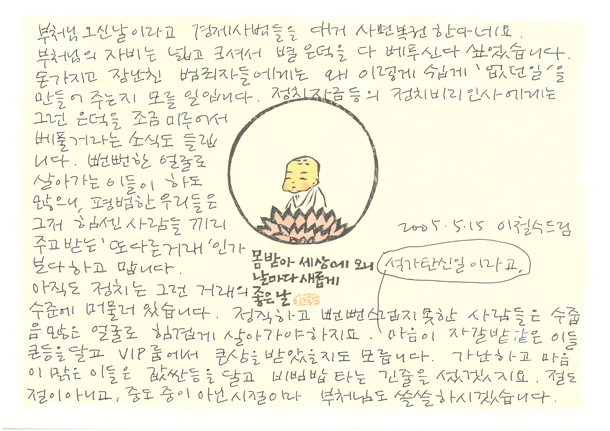 부처님 오신날이라고 경제사범들을 대거 사면복권 한다네요.
부처님의 자비는 넓고 크셔서 별 은덕을 다 베푸신다 싶었습니다.
돈가지고 장난친 범죄자들에게는 왜 이렇게 쉽게 '없던일'을
만들어 주는지 모를 일입니다. 정치자금등의 정치비리 인사에게는
그런 은덕을 조금 미루어서
베풀거라는 소식도 들립
니다. 뻔뻔한 얼굴로
살아가는 이들이 하도
많으니, 평범한 우리들은
그저 힘센 사람들 끼리
주고 받는 '또 다른 거래' 인가
보다 하고 맙니다.
아직도 정치는 그런 거래의
수준에 머물러 있습니다. 정직하고 뻔뻔스럽지 못한 사람들은 수줍
음 많은 얼굴로 힘겹게 살아가야하지요. 마음이 자갈밭 같은 이들
큰등을 달고 VIP룸에서 큰상을 받았을지도 모릅니다. 가난하고 마음
이 맑은 이들은 값싼등을 달고 비빔밥 타는 긴줄을 섰겠지요. 절도
절이 아니고, 중도 중이 아닌 시절이라 부처님도 쓸쓸하시겠습니다.
2005.5.15 이철수드림
석가탄신일이라고,
몸받아 세상에 오니
날마다 새롭게
좋은날